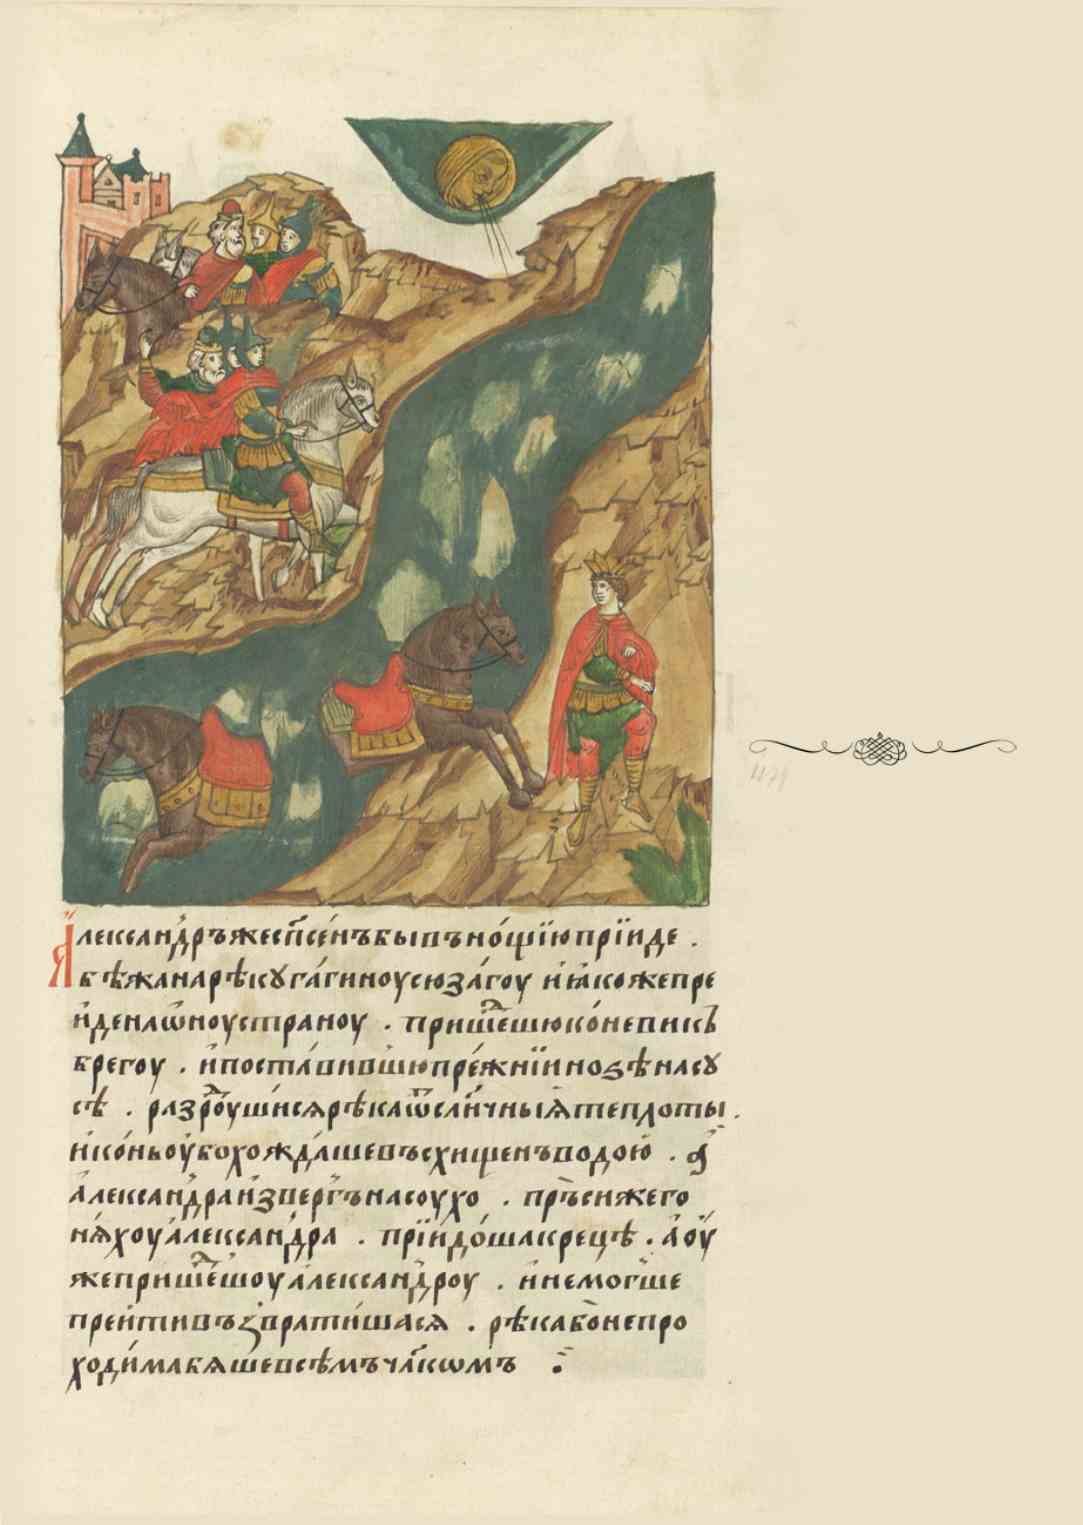 Александръ же сп҃сенъ бывъ нощїю прїиде .
бѣжа на рѣкꙋ гагиноу сю загоу и ꙗкоже пре
иде на ѡноу страноу . пришеⷣшю коневи къ
брегоу . и поставившю прежнїи нозѣ на сꙋ
сѣ . разрⷣоушисѧ рѣка ѿ слн҃чныѧ теплоты .
и конь оубо хождаше въсхищенъ водою . а҃
александра извергъ на соухо . пръсиже го
нѧхоу александра . прїидоша к рецѣ . а оу
же пришеⷣшоу александроу . и не могше
преити възвратишасѧ . рѣка бо не про
ходима бѧше всѣмъ чл҃кѡмъ
479